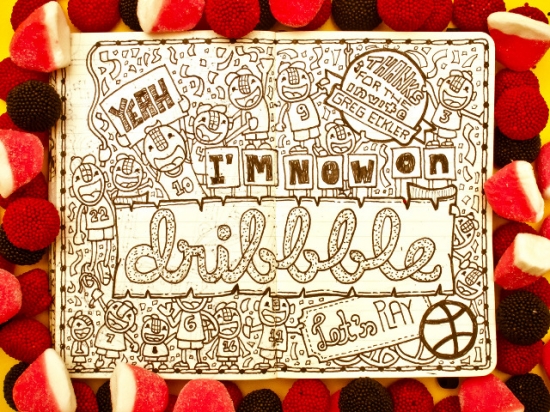 YEAH
THANKS
FOR THE
invite
GREG
9
3
I'M NOW on
10
22
dribbble
Let's PLAY
7
8
6
16